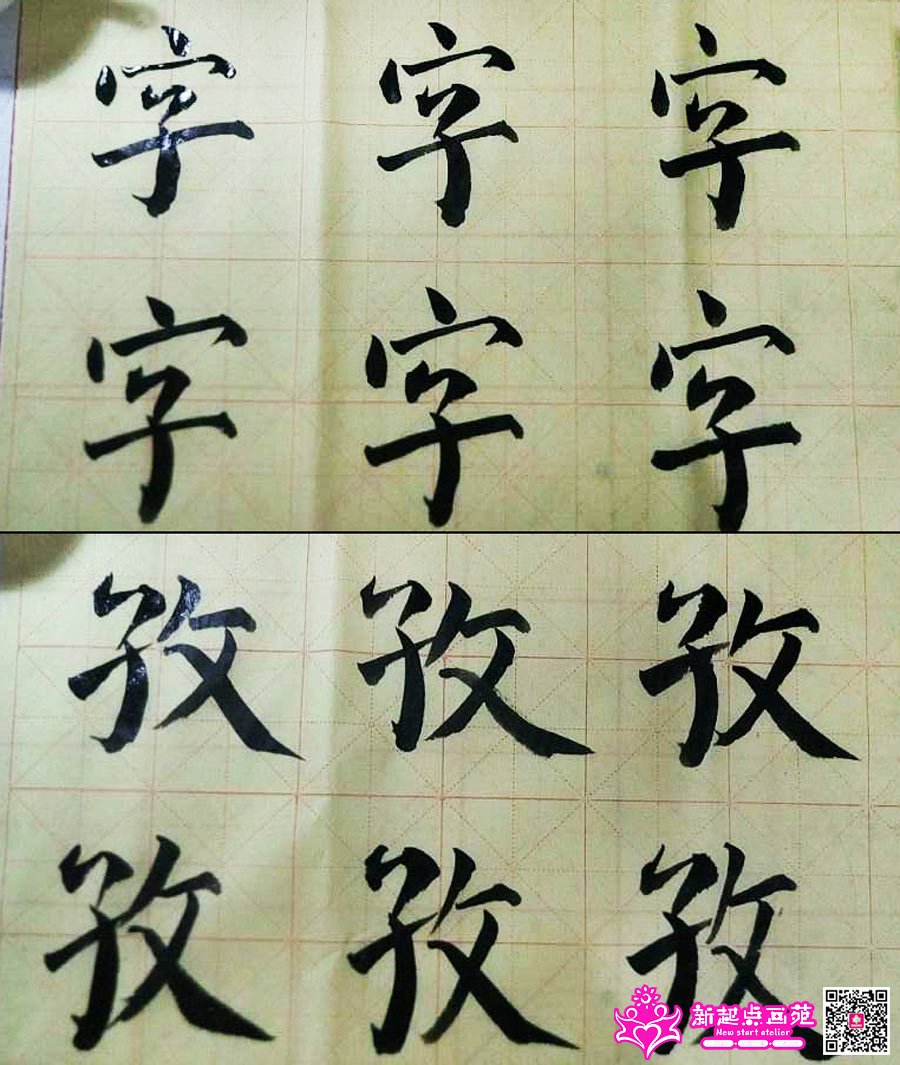 字 字 字
字 字 字
孜 孜 孜
孜 孜 孜
新起点画苑
New start atelier